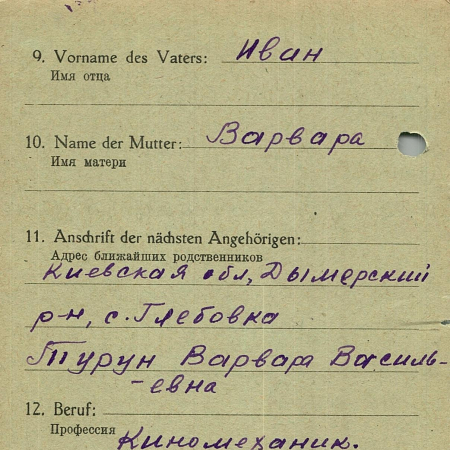 9. Vorname des Vaters: Иван
Имя отца
10. Name der Mutter: Варвара
Имя матери
11. Anschrift der nächsten Angehörigen:
Адрес ближайших родственников
Киевская обл, Дымерский
р-н, с. Глебовка
Турун Варвара Василь-
-евна
12. Beruf:
Профессия
Киномеханик.